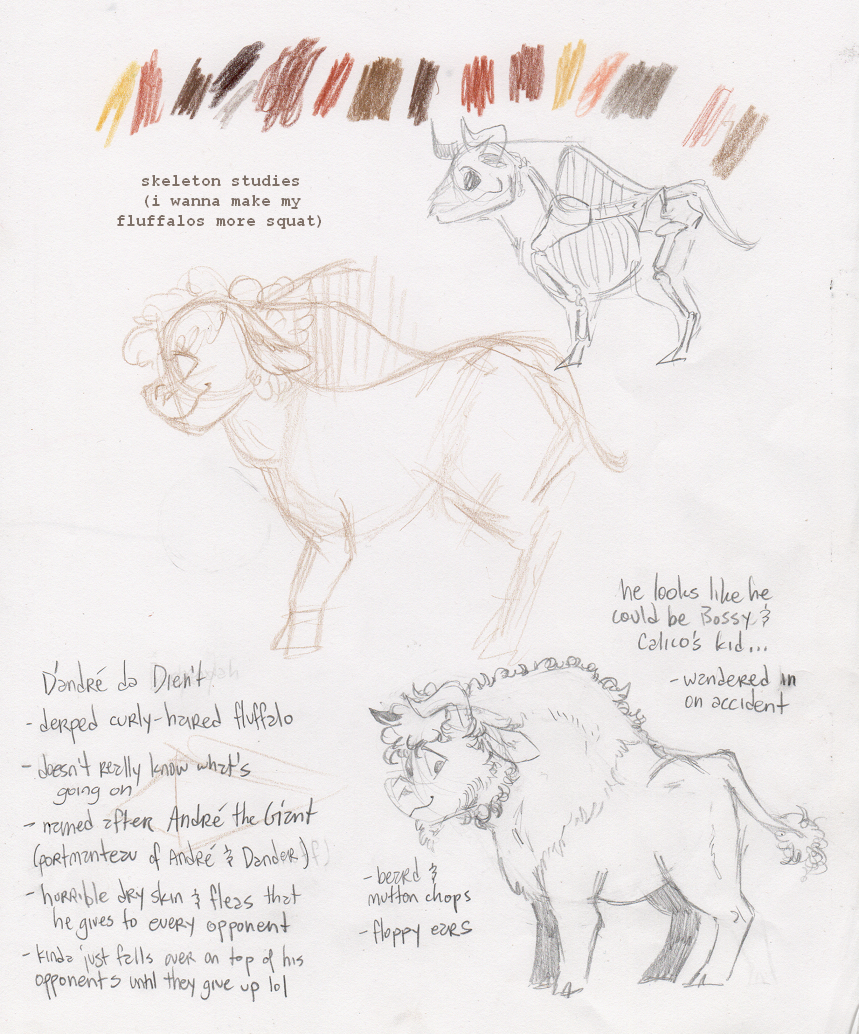 skeleton studies
(i wanna make my
fluffalos more squat)
he looks like he
could be Bossy &
Calico's kid...
- wandered in
on accident
D'andré da Dien't
- derped curly-haired fluffalo
- doesn't really know what's
going on
- named after André the Giant
(portmanteau of André & Dander)
- horrible dry skin & fleas that
he gives to every opponent
- kinda just falls over on top of his
opponents until they give up lol
- beard &
mutton chops
- floppy ears